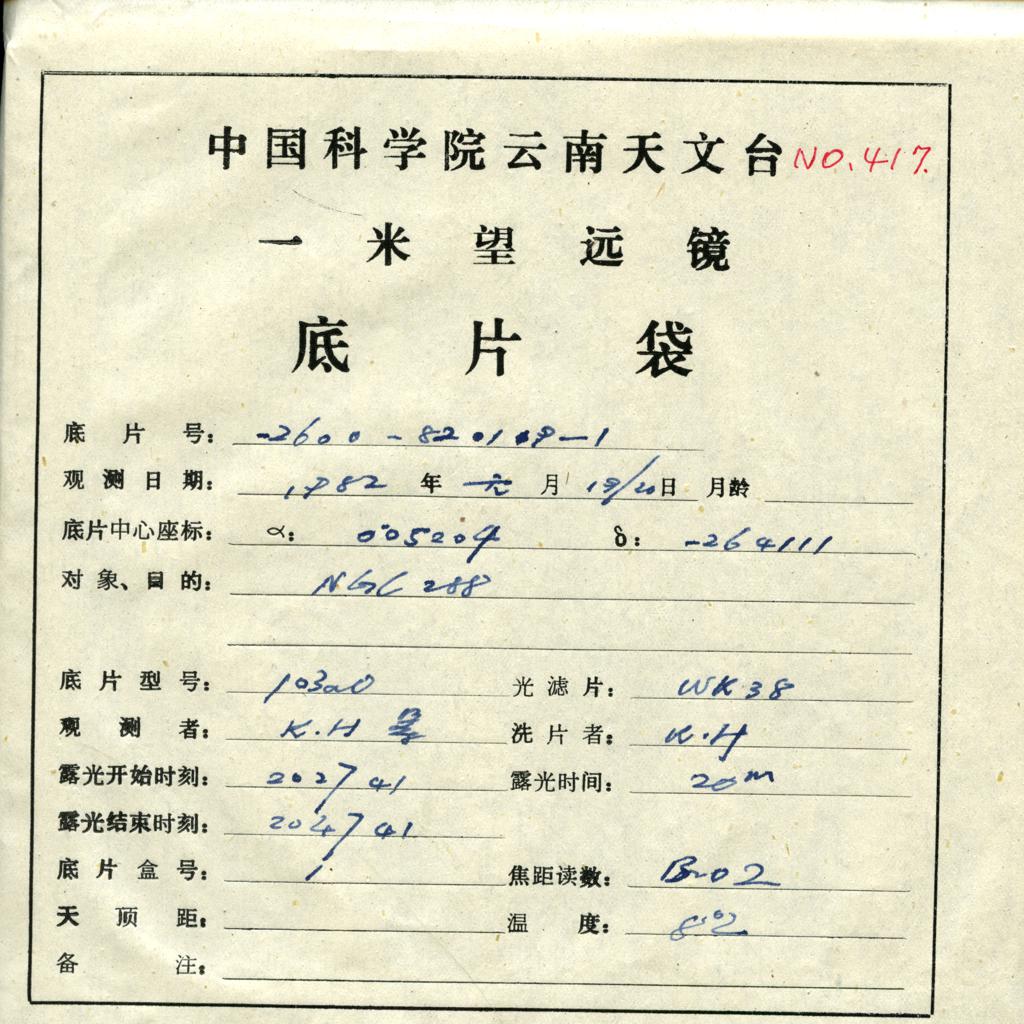 中国科学院云南天文台 NO.417.
一米望远镜
底片袋
底片号： -2600-820119-1
观测日期： 1982 年 元 月 19/20 日 月龄
底片中心座标： α： 005204 δ： -264111
对象、目的： NGC 288
底片型号： 103aO 光滤片： WK38
观测者： K.H 洗片者： K.H
露光开始时刻： 202741 露光时间： 20m
露光结束时刻： 204741
底片盒号： 1 焦距读数：
天顶距： 温度：
备注：